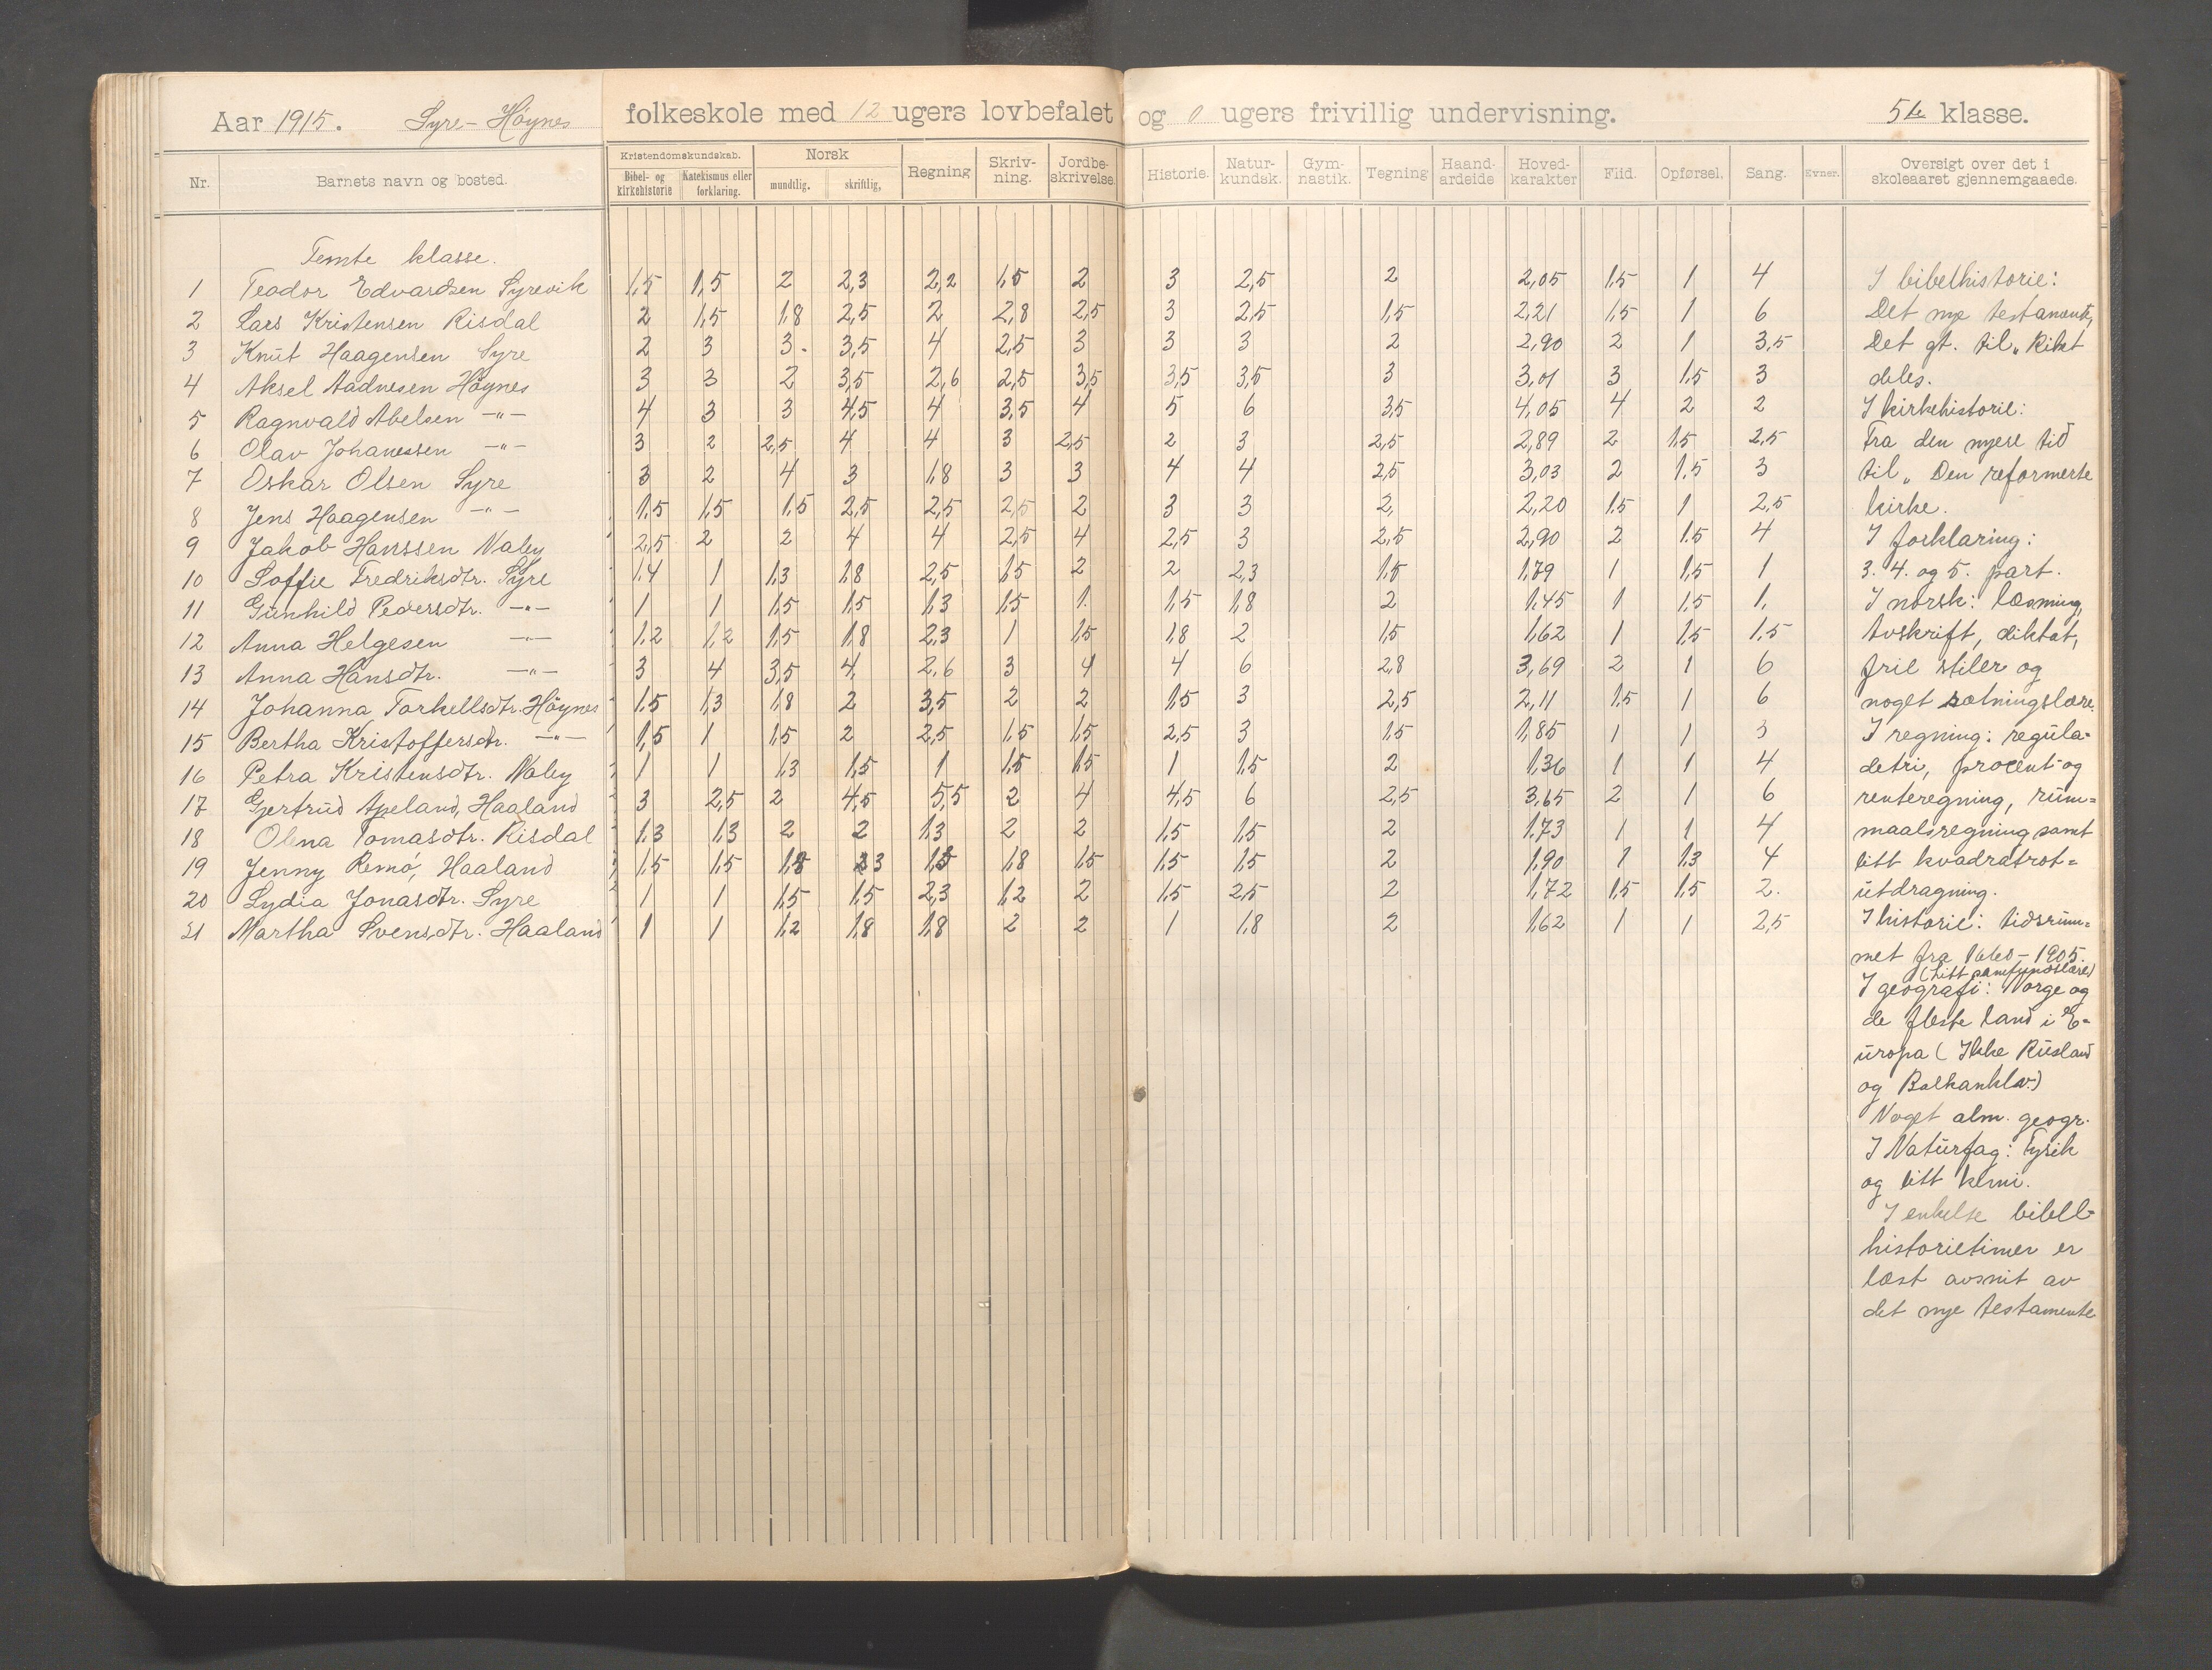 Aar 1915. Syre-Høynes folkeskole med 12 ugers lovbefalet og 0 ugers frivillig undervisning. 5te klasse.
Nr. Barnets navn og bosted. Kristendomskundskab. Bibel- og kirkehistorie Katekismus eller forklaring. Norsk mundtlig. skriftlig, Regning Skriv-ning. Jordbe-skrivelse. Historie. Natur-kundsk. Gym-nastik. Tegning Haand-ardeide Hoved-karakter Flid. Opførsel. Sang. Evner. Oversigt over det i skoleaaret gjennemgaaede.
Femte klasse.
1 Teodor Edvardsen Syrevik 1,5 1,5 2 2,3 2,2 1,5 2 3 2,5 2 2,05 1,5 1 4 I bibelhistorie:
2 Lars Kristensen Risdal 2 1,5 1,8 2,5 2 2,8 2,5 3 2,5 1,5 2,21 1,5 1 6 Det nye testamente,
3 Knut Haagensen Syre 2 3 3 3,5 4 2,5 3 3 3 2 2,90 2 1 3,5 Det gt. til „Riket
4 Aksel Aadnesen Høynes 3 3 2 3,5 2,6 2,5 3,5 3,5 3,5 3 3,01 3 1,5 3 deles.
5 Ragnvald Abelsen -"- 4 3 3 4,5 4 3,5 4 5 6 3,5 4,05 4 2 2 I kirkehistorie:
6 Olav Johanessen -"- 3 2 2,5 4 4 3 2,5 2 3 2,5 2,89 2 1,5 2,5 Fra den nyere tid
7 Oskar Olsen Syre 3 2 4 3 1,8 3 3 4 4 2,5 3,03 2 1,5 3 til „Den reformerte
8 Jens Haagensen -"- 1,5 1,5 1,5 2,5 2,5 2,5 2 3 3 2, 2,20 1,5 1 2,5 kirke.
9 Jakob Hanssen Naley 2,5 2 2 4 4 2,5 4 2,5 3 2,5 2,90 2 1,5 4 I forklaring:
10 Soffie Fredriksdtr. Syre 1,4 1 1,3 1,8 2,5 1,5 2 2 2,3 1,5 1,79 1 1,5 1 3. 4. og 5. part.
11 Gunhild Pedersdtr. -"- 1 1 1,5 1,5 1,3 1,5 1 1,5 1,8 2 1,45 1 1,5 1, I norsk: læsning,
12 Anna Helgesen -"- 1,2 1,2 1,5 1,8 2,3 1 1,5 1,8 2 1,5 1,62 1 1,5 1,5 Avskrift, diktat,
13 Anna Hansdtr. -"- 3 4 3,5 4, 2,6 3 4 4 6 2,8 3,69 2 1 6 frie stiler og
14 Johanna Torkellsdtr. Høynes 1,5 1,3 1,8 2 3,5 2 2 1,5 3 2,5 2,11 1,5 1 6 noget sætningslære.
15 Bertha Kristoffersdtr. -"- 1,5 1 1,5 2 2,5 1,5 1,5 2,5 3 1,5 1,85 1 1 3 I regning: regula-
16 Petra Kristensdtr. Naley 1 1 1,3 1,5 1 1,5 1,5 1 1,5 2 1,36 1 1 4 detri, procent- og
17 Gjertrud Apeland, Haaland 3 2,5 2 4,5 5,5 2 4 4,5 6 2,5 3,65 2 1 6 renteregning, rum=
18 Olena Tomasdtr. Risdal 1,3 1,3 2 2 1,3 2 2 1,5 1,5 2 1,73 1 1 4 maalsregning samt
19 Jenny Remø, Haaland 1,5 1,5 1,8 2,3 1,5 1,8 1,5 1,5 1,5 2 1,90 1 1,3 4 litt kvadratrot=
20 Lydia Jonasdtr. Syre 1 1 1,5 1,5 2,3 1,2 2 1,5 2,5 2 1,72 1,5 1,5 2. utdragning.
21 Martha Svensdtr. Haaland 1 1 1,2 1,8 1,8 2 2 1 1,8 2 1,62 1 1 2,5 I historie: tidsrum=
met fra 1660-1905.
(Litt samfundslære)
I geografi: Norge og
de fleste land i E-
uropa (Ikke Rusland
og Balkanhlv.)
Noget alm. geogr.
I Naturfag: Fysik
og litt kemi.
I enkelte bibel-
historietimer er
læst avsnit av
det nye testamente